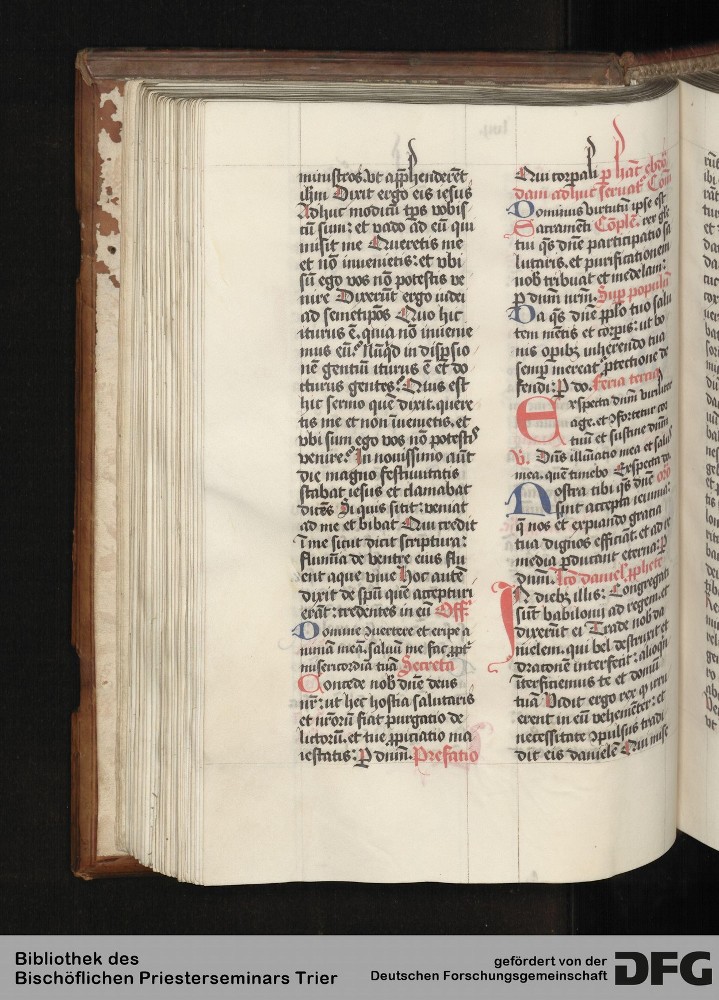 ministros. vt apphenderēt
ihm Dixit ergo eis iesus
Adhuc modicū tp̄s vobis
cū sum: et vado ad eū qui
misit me Queretis me
et nō inuenietis: et vbi
sū ego vos nō potestis ve
nire Dixerūt ergo iudei
ad semetip̄os Quo hic
iturus ē. quia nō inuenie
mus eū? Nūqd in disp̄sio
nē gentiū iturus ē et do
cturus gentes? Quis est
hic sermo quē dixit. quere
tis me et non īuenietis. et
vbi sum ego vos nō potestis
venire? In nouissimo aūt
die magno festiuitatis
stabat iesus et clamabat
dicēs Si quis sitit: veniat
ad me et bibat Qui credit
ī me sicut dicit scriptura:
flumīa de ventre eius flu
ent aque viue Hoc autē
dixit de spū quē accepturi
erāt: credentes in eū Off.
Domine ↄuertere et eripe a
nimā meā. saluū me fac ꝓpt̄
misericordiā tuā Secreta
Concede nob̄ dn̄e deus
nr̄: ut hec hostia salutaris
et nr̄orū fiat purgatio de
lictorū. et tue ꝓpiciatio ma
iestatis: P dnm̄. Prefatio
Qui corpali p hāc ebdo
dam adhuc seruat̄ Cōm̄
Dominus virtutū ipse est
Sacramēti Cōplē. rex gl̄e
tui qs dn̄e participatio sa
lutaris. et purificationem
nob̄ tribuat et medelam:
p dnūm nrm̄. Sup populū
Da qs dn̄e pplo tuo salu
tem mētis et corpis: ut bo
nis opibꝫ inherendo tua
semp mereat̄ ꝓtectione de
fendi: P do. feria tercia
Exspecta dnūm viriliter
age. et ↄfortetur cor
tuū et sustine dnūm
V. Dn̄s illūiatio mea et salus
mea. quē timebo Exspecta do
Nostra tibi qs dn̄e oro
sint accepta ieiunia:
q̄ nos et expiando gratia
tua dignos efficiāt. et ad re
media ꝑducant eterna: P
dnūm. Lco daniel. ꝓphete
In diebꝫ illis: Congregati
sūt babilonij ad regem. et
dixerūt ei Trade nob̄ da
nielem. qui bel destruxit et
draconē interfecit: alioqn
īterficiemus te et domū
tuā Vidit ergo rex ꝙ irru
erent in eū vehemēter: et
necessitate ↄpulsus tradi
dit eis danielē Qui mise
Bibliothek des
Bischöflichen Priesterseminars Trier
gefördert von der
Deutschen Forschungsgemeinschaft
DFG